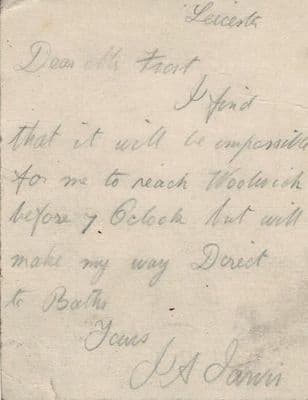 Leicester
Dear Mr Frost
I find
that it will be impossible
for me to reach Woolwich
before 7 Oclock but will
make my way Direct
to Baths
Yours
J A Jarvis